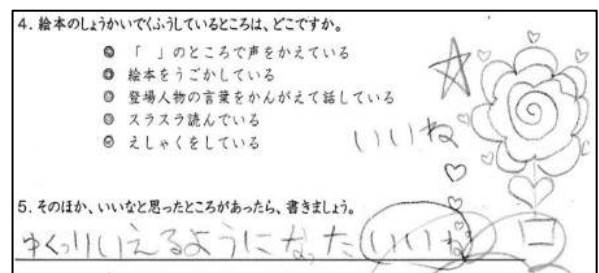 4. 絵本のしょうかいでくふうしているところは、どこですか。
◎ 「 」のところで声をかえている
◎ 絵本をうごかしている
◎ 登場人物の言葉をかんがえて話している
◎ スラスラ読んでいる
◎ えしゃくをしている
いいね
5. そのほか、いいなと思ったところがあったら、書きましょう。
ゆっくりいえるようになった いいね